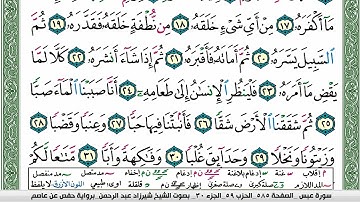 مَآ أَكۡفَرَهُۥ ١٧ مِنۡ أَيِّ شَيۡءٍ خَلَقَهُۥ ١٨ مِن نُّطۡفَةٍ خَلَقَهُۥ فَقَدَّرَهُۥ ١٩ ثُمَّ
ٱلسَّبِيلَ يَسَّرَهُۥ ٢٠ ثُمَّ أَمَاتَهُۥ فَأَقۡبَرَهُۥ ٢١ ثُمَّ إِذَا شَآءَ أَنشَرَهُۥ ٢٢ كَلَّا لَمَّا
يَقۡضِ مَآ أَمَرَهُۥ ٢٣ فَلۡيَنظُرِ ٱلۡإِنسَٰنُ إِلَىٰ طَعَامِهِۦٓ ٢٤ أَنَّا صَبَبۡنَا ٱلۡمَآءَ صَبّٗا
٢٥ ثُمَّ شَقَقۡنَا ٱلۡأَرۡضَ شَقّٗا ٢٦ فَأَنۢبَتۡنَا فِيهَا حَبّٗا ٢٧ وَعِنَبٗا وَقَضۡبٗا ٢٨
وَزَيۡتُونٗا وَنَخۡلٗا ٢٩ وَحَدَآئِقَ غُلۡبٗا ٣٠ وَفَٰكِهَةٗ وَأَبّٗا ٣١ مَّتَٰعٗا لَّكُمۡ
سورة عبس الصفحة ٥٨٥ الحزب ٥٩ الجزء ٣٠ بصوت الشيخ شيرزاد عبد الرحمن برواية حفص عن عاصم